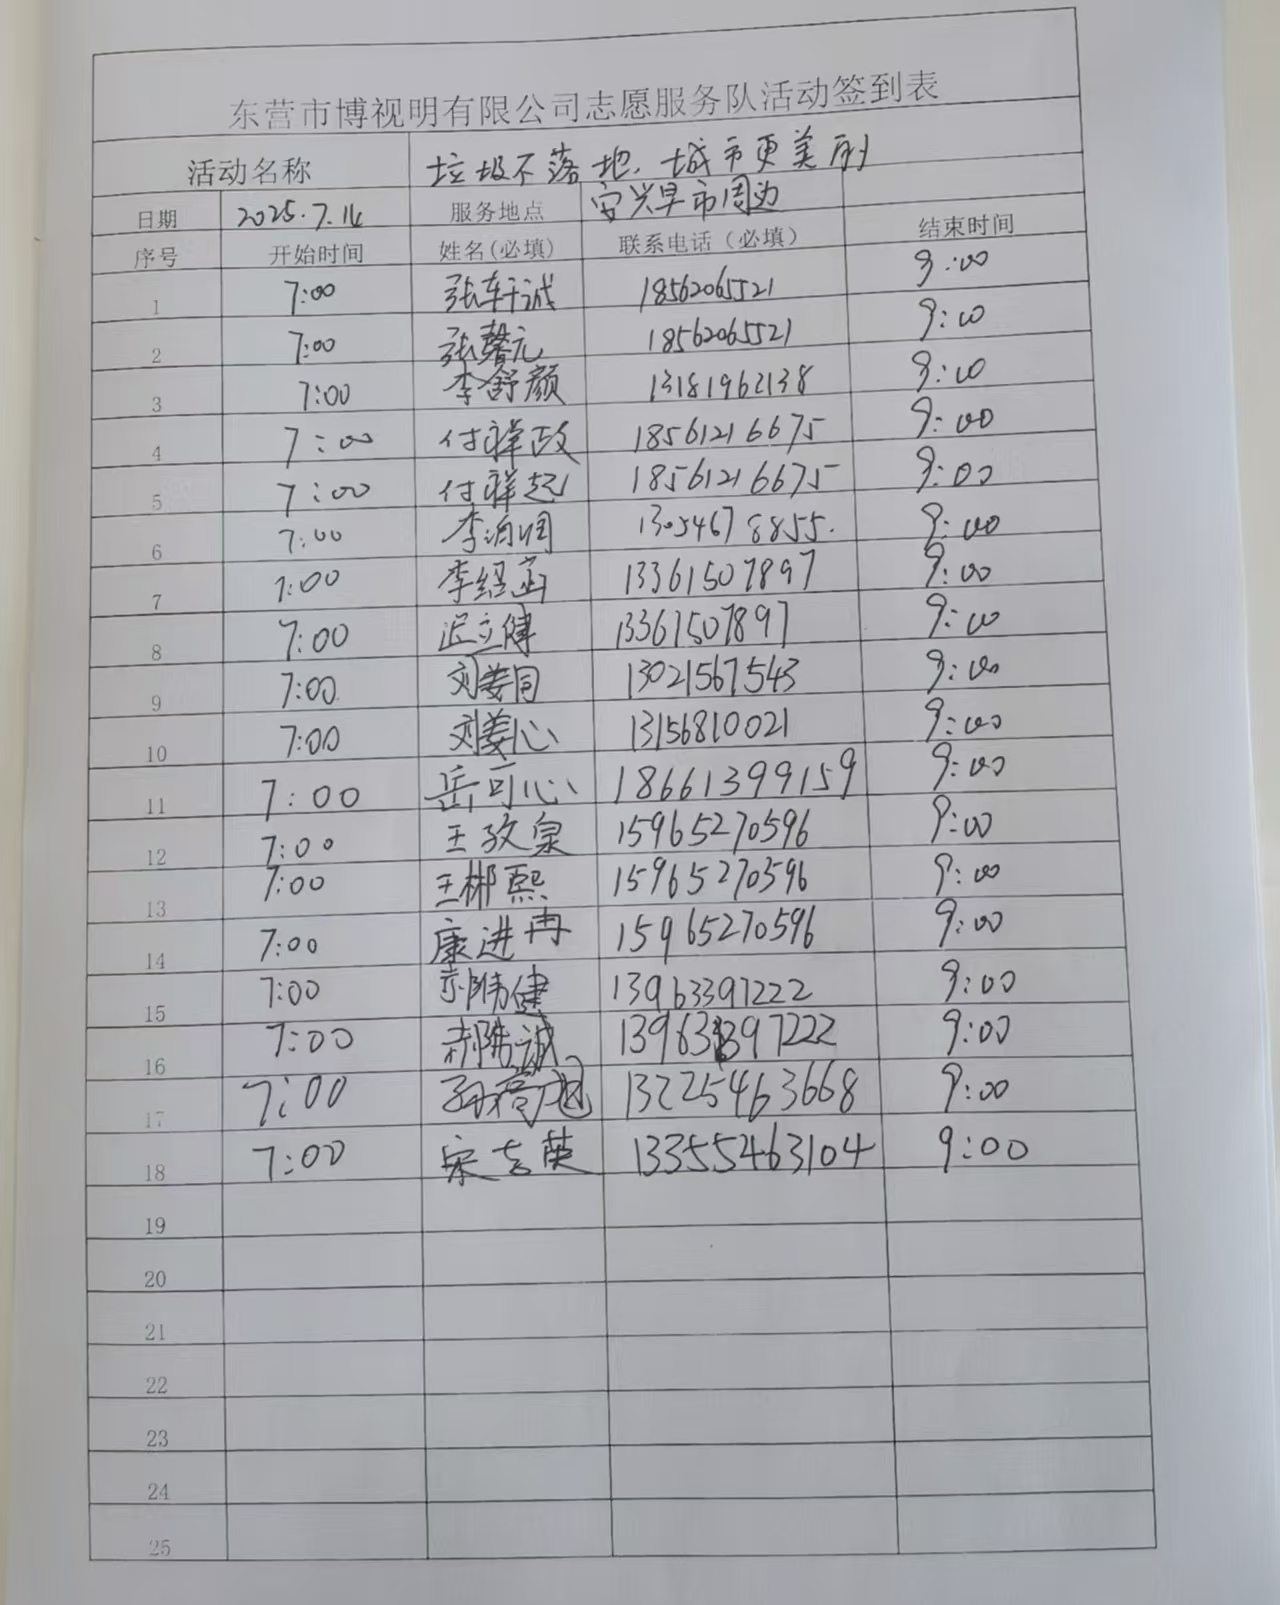 东营市博视明有限公司志愿服务队活动签到表
活动名称 垃圾不落地，城市更美丽
日期 2025.7.14 服务地点 安兴早市周边
序号 开始时间 姓名(必填) 联系电话（必填） 结束时间
1 7:00 张轩诚 18562065521 9:00
2 7:00 张馨元 18562065521 9:00
3 7:00 李舒颜 13181962138 9:00
4 7:00 付祥政 18561216675 9:00
5 7:00 付祥起 18561216675 9:00
6 7:00 李泊润 13054678855. 9:00
7 7:00 李绍菡 13361507897 9:00
8 7:00 迟立健 13361507897 9:00
9 7:00 刘姜同 13021567543 9:00
10 7:00 刘姜心 13156810021 9:00
11 7:00 岳可心 18661399159 9:00
12 7:00 王孜泉 15965270596 9:00
13 7:00 王郴熙 15965270596 9:00
14 7:00 康进冉 15965270596 9:00
15 7:00 13963397222 9:00
16 7:00 1396397222 9:00
17 7:00 13225463668 9:00
18 7:00 宋志英 13355463104 9:00
19
20
21
22
23
24
25